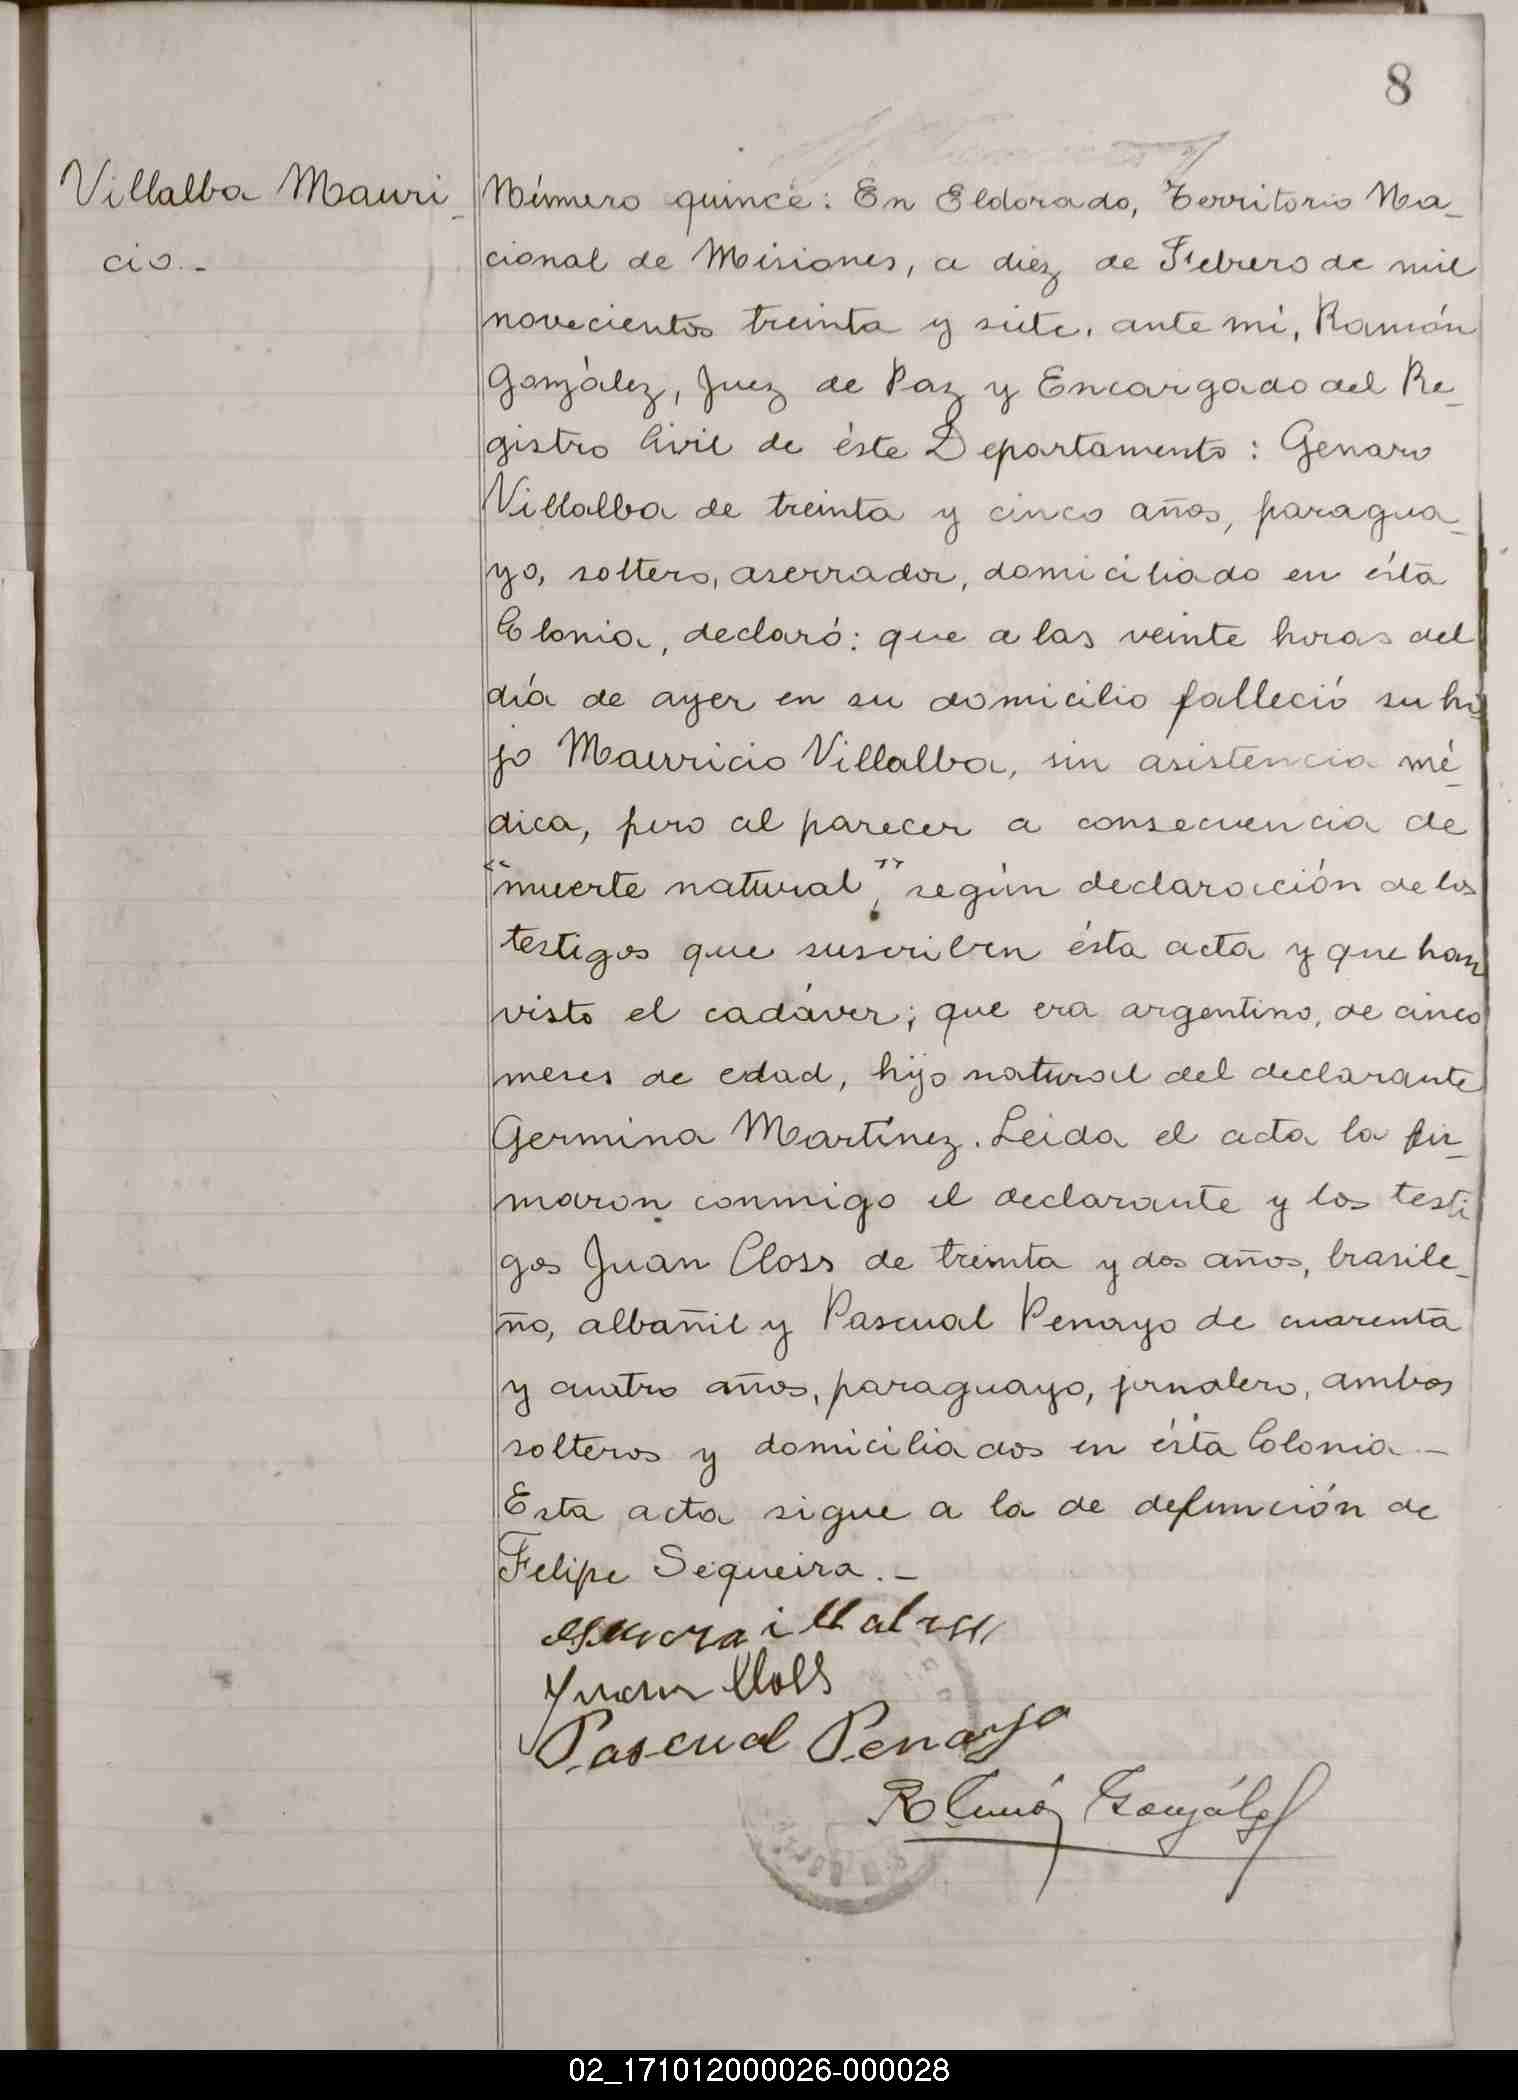 8
Villalba Mauri-
cio.-
Número quince: En Eldorado, Territorio Na-
cional de Misiones, a diéz de Febrero de mil
novecientos treinta y siete, ante mí, Ramón
González, Juez de Paz y Encargado del Re-
gistro Civil de éste Departamento: Genaro
Villalba de treinta y cinco años, paragua-
yo, soltero, aserrador, domiciliado en ésta
Clonia, declaró: que a las veinte horas del
día de ayer en su domicilio falleció su hi-
jo Mauricio Villalba, sin asistencia mé-
dica, pero al parecer a consecuencia de
"muerte natural", según declaración de los
testigos que suscriben ésta acta y que han
visto el cadáver; que era argentino, de cinco
meses de edad, hijo natural del declarante
Germina Martínez. Leida el acta la fir-
maron conmigo el declarante y los testi
gos Juan Closs de treinta y dos años, brasile-
ño, albañil y Pascual Penayo de cuarenta
y cuatro años, paraguayo, jornalero, ambos
solteros y domiciliados en ésta Colonia.-
Esta acta sigue a la de defunción de
Felipe Sequeira.-
Juan Closs
Pascual Penayo
Ramón González
02_171012000026-000028